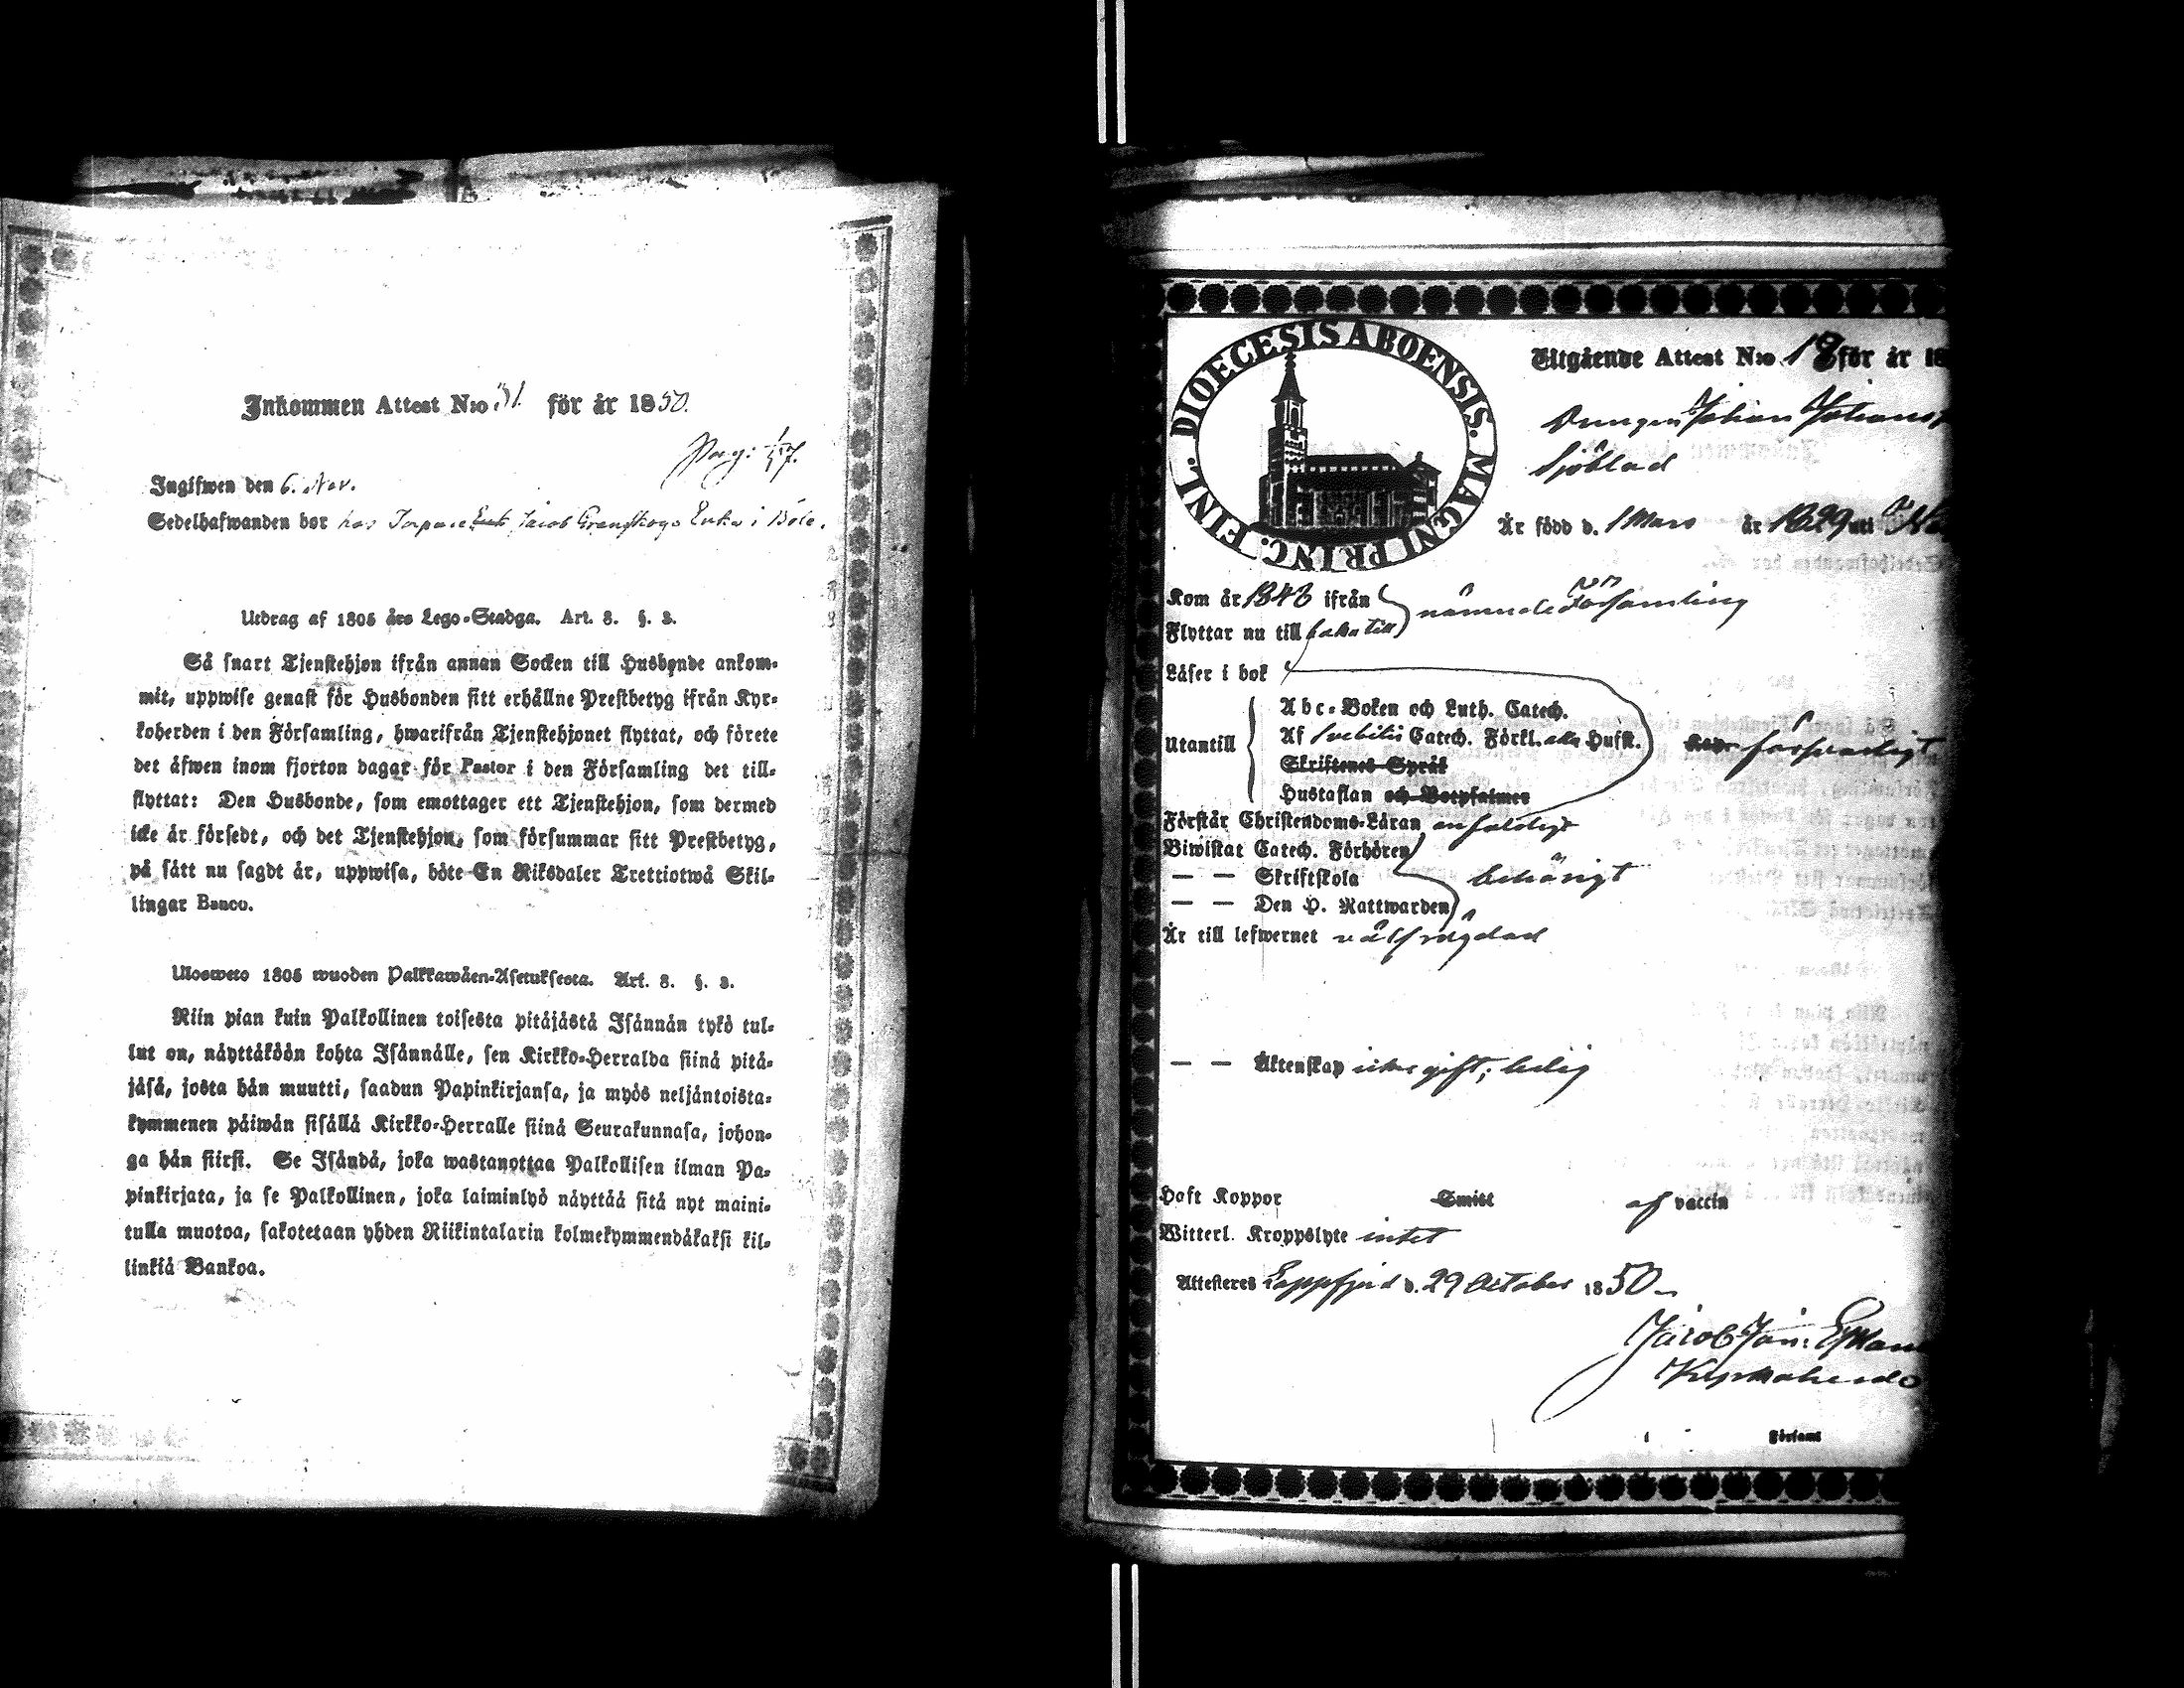 Inkommen Attest N:o 31. för år 1850.
Pag:
Ingifwen den 6. Nov.
Sedelhafwanden bor hos Jacob Granskogs Enka i Böle.
Utdrag af 1805 års Lego-Stadga. Art. 8. §. 3.
Så snart Tjenstehjon ifrån annan Socken till Husbonde ankom-
mit, uppwise genast för Husbonden sitt erhållne Prestbetyg ifrån Kyr-
koherden i den Församling, hwarifrån Tjenstehjonet flyttat, och förete
det äfwen inom fjorton dagar för Pastor i den Församling det till-
flyttat: Den Husbonde, som emottager ett Tjenstehjon, som dermed
icke är försedt, och det Tjenstehjon, som försummar sitt Prestbetyg,
på sätt nu sagdt är, uppwisa, böte En Riksdaler Trettiotwå Skil-
lingar Banco.
Ulosweto 1805 wuoden Palkkawäen-Asetuksesta. Art. 8. §. 3.
Niin pian kuin Palkollinen toisesta pitäjästä Isännän tykö tul-
lut on, näyttäköön kohta Isännälle, sen Kirkko-Herralda siinä pitä-
jäsä, josta hän muutti, saadun Papinkirjansa, ja myös neljäntoista-
kymmenen päiwän sisällä Kirkko-Herralle siinä Seurakunnasa, johon-
ga hän siirsi. Se Isändä, joka wastanottaa Palkollisen ilman Pa-
pinkirjata, ja se Palkollinen, joka laiminlyö näyttää sitä nyt maini-
tulla muotoa, sakotetaan yhden Riikintalarin kolmekymmendäkaksi kil-
linkiä Bankoa.
DIOECESIS ABOENSIS. MAGNI PRINC. FINL.
Utgående Attest N:o för år 18
Drengen Johan Johans
Sjöblad
Är född d. 1 Mars år 1829 uti
Kom år 1843 ifrån nämnde Församling
Flyttar nu till baka till
Läser i bok
Utantill
Abc-Boken och Luth. Catech.
Af Svebilii Catech. Förkl. Husst.
Skriftenes Språk
Hustaflan och Botpsalmer
försvarligt
Förstår Christendoms-Läran enfaldigt
Biwistat Catech. Förhören
— — Skriftskola behörigt
— — Den H. Nattwarden
Är till lefwernet välfrägdad
— — Äktenskap icke gift; ledig
Haft Koppor Smitt af vaccin
Witterl. Kroppslyte intet
Attesteres Lappfjerd d. 29 October 1850
Jacob Joh: Estlan
Kyrkoherde
i Församl